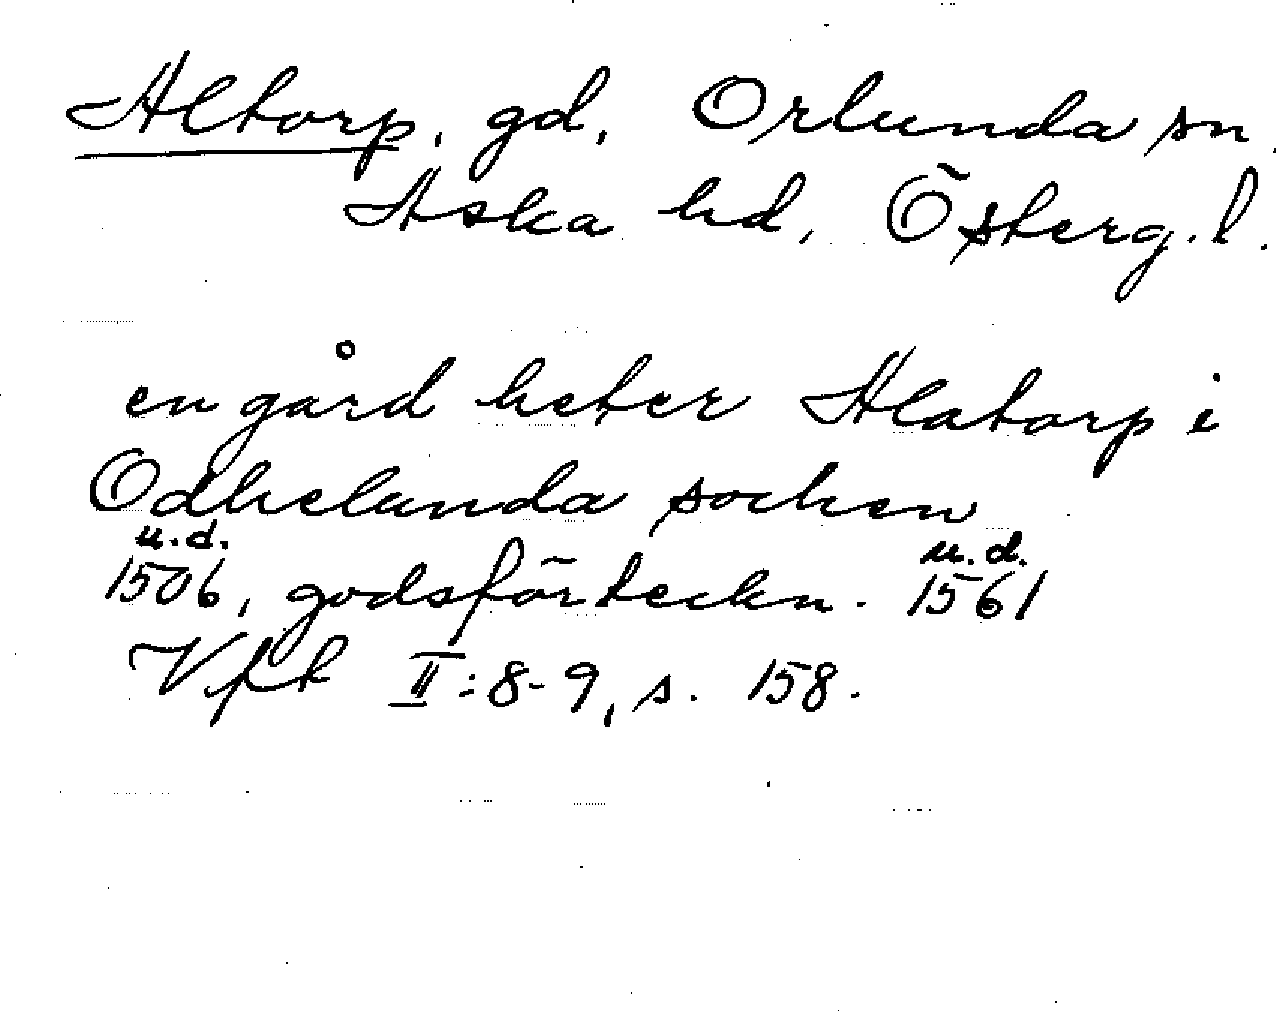 Altorp, gd, Orlunda sn.
Aska hd, Österg. l.
en gård heter Alatorp i
Odhelunda sochen
u.d. u.d.
1506, godsförteckn. 1561
Vfk II:8-9, s. 158.